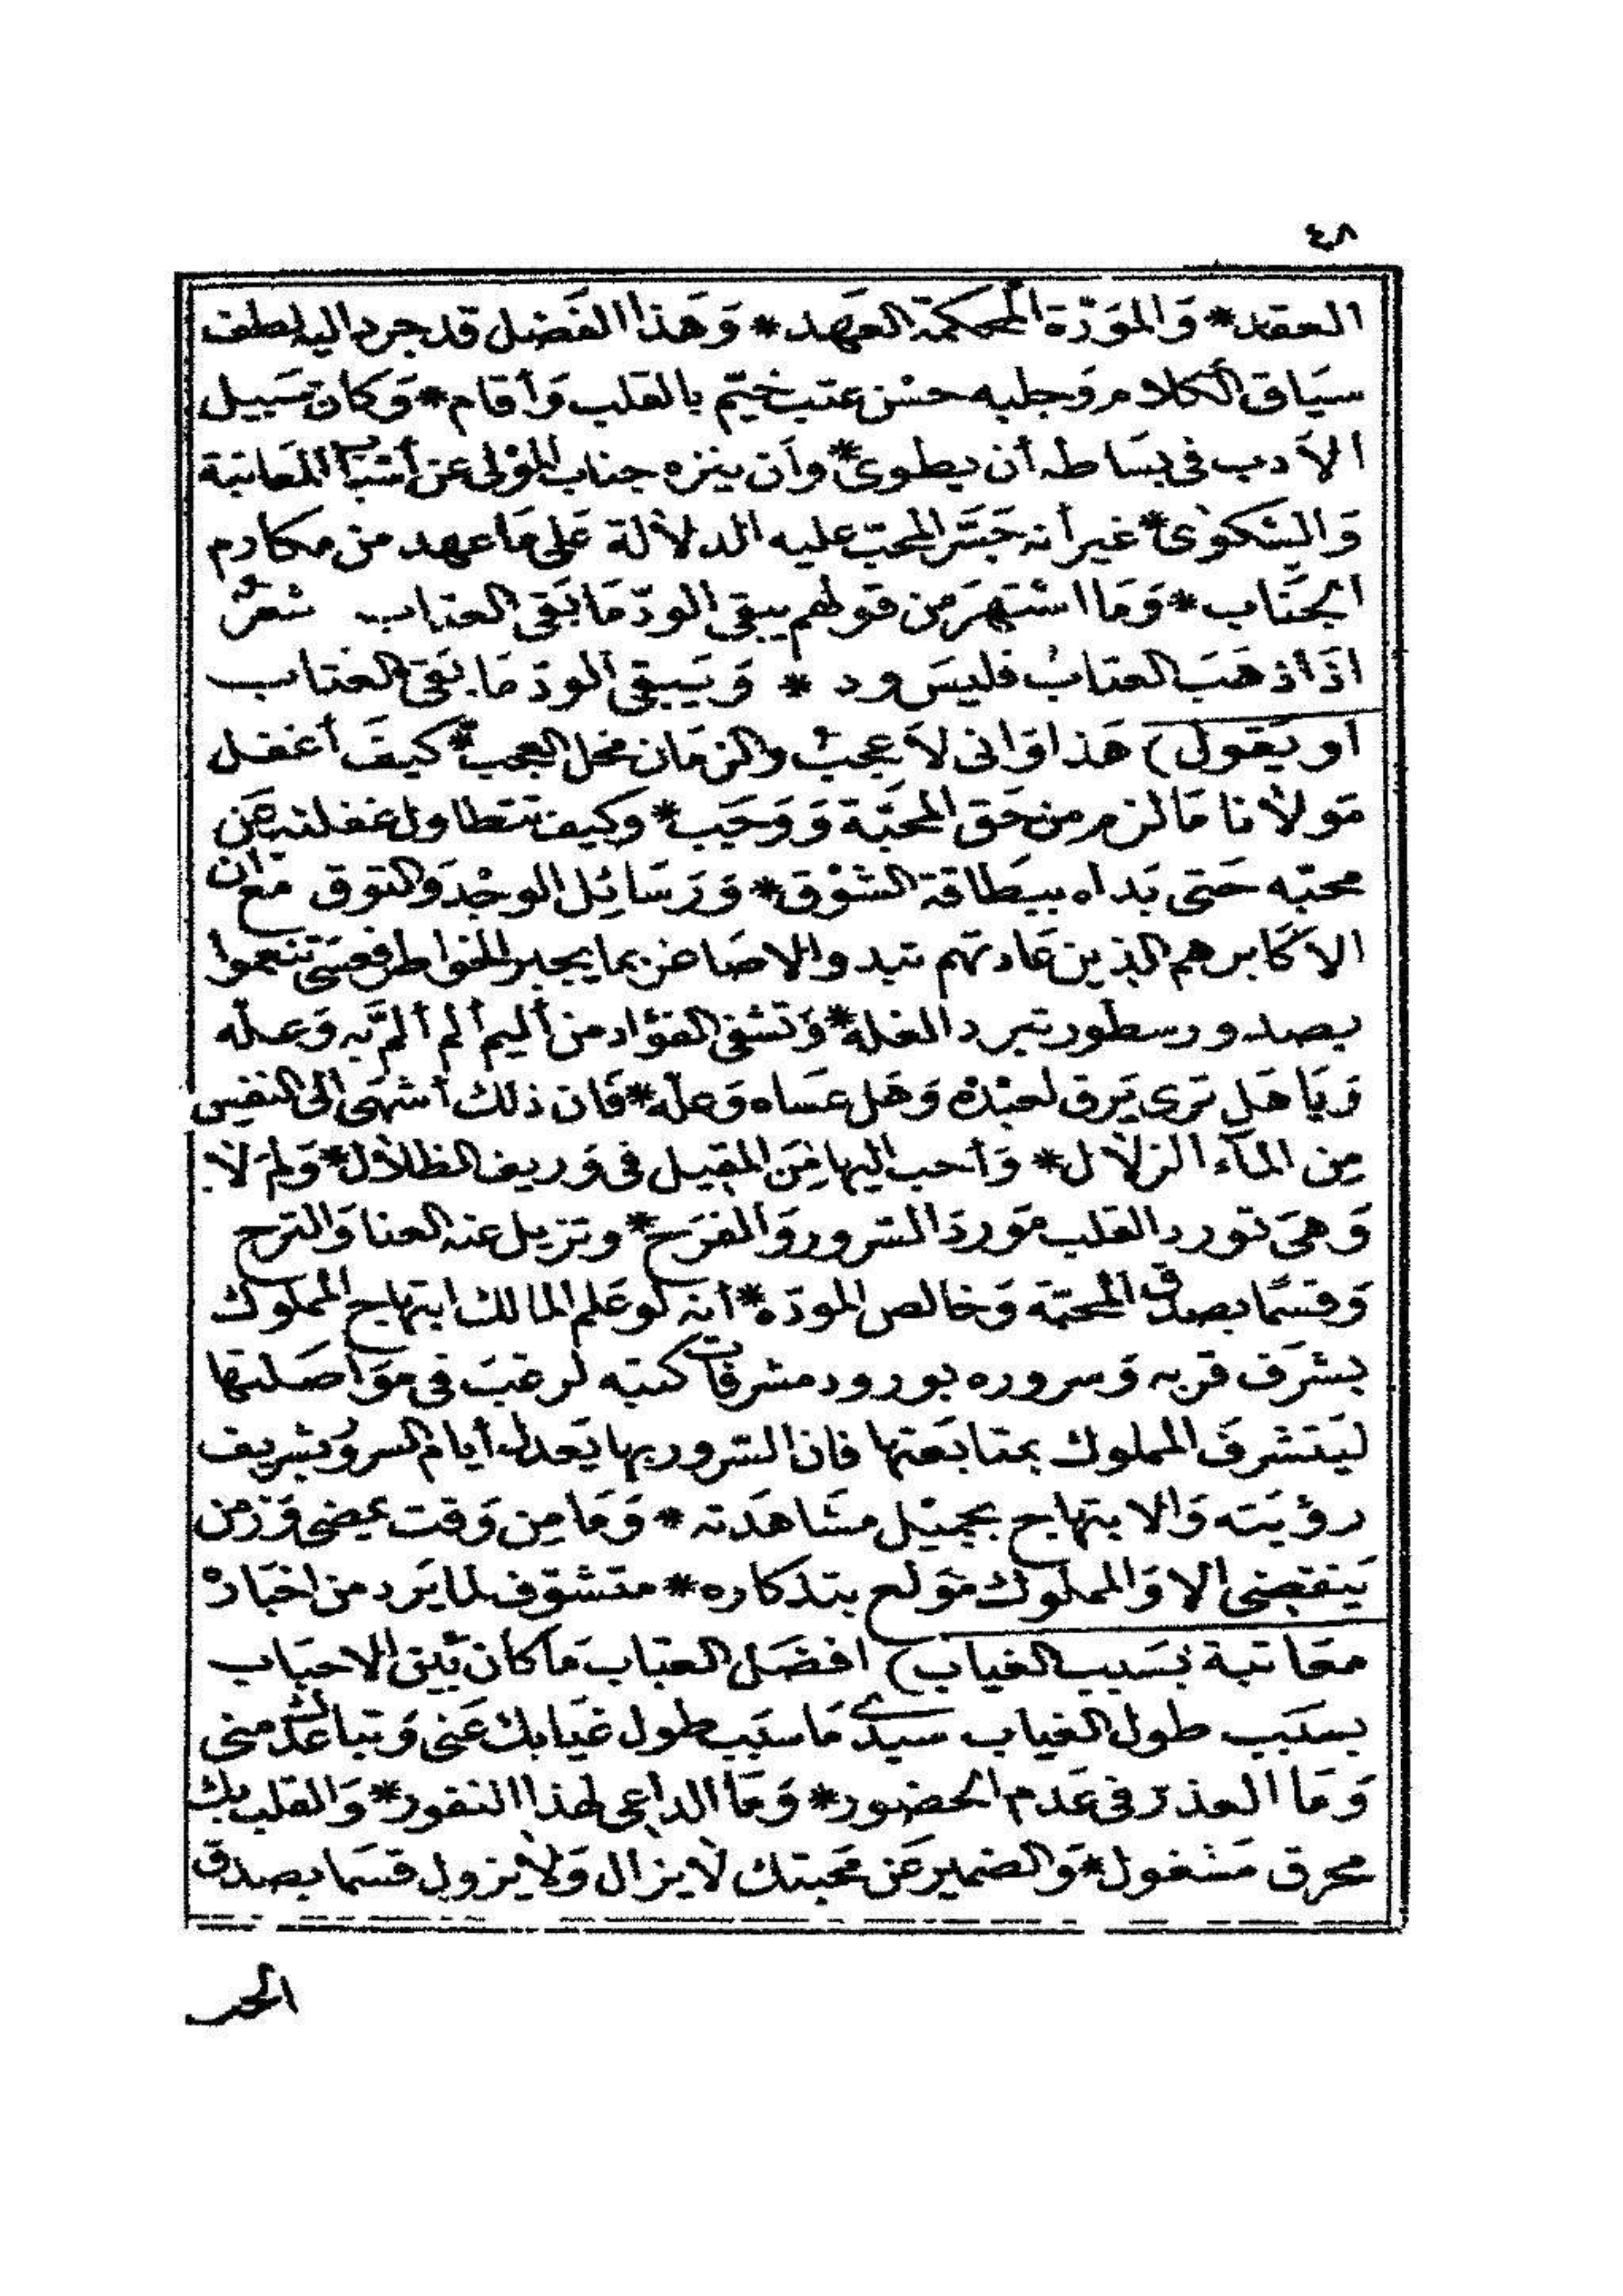 ٤٨
العقد * وَالموَدّة المحكمة العَهد * وَهَذا الفَضل قد جرد اليه لطف
سيَاق الكلام وَجلبه حسْن عتب خيّم بالقلب وَأقام * وَكان سَبيل
الأدب فى بسَاطه أن يطوى * وأن ينزه جناب المؤلى عن أشبَاب المعَاتبة
وَالشكوىْ * غير أنه جَسَّر المحبّ عليه الدلالة عَلى مَا عهد من مكارم
الجنَاب * وَمَا اشتهَر من قولهم يبقى الودّ مَا بَقى العتاب شعرٌ
اذَا ذهَبَ العتابُ فليسَ ود * وَيَبقى الودّ مَا بَقى العتاب
او يَقول) هَذا وَانى لاَعجبُ والزمَان محَل العجب * كيفَ أغفل
مَولانا مَا لزم من حَق المحَبّة وَوَجَب * وكيف تتطاول غفلته عَن
محبّه حَتى بَداه ببطَاقة الشوْق * وَرَسَائِل الوجْد وَالتوق مَع أن
الاكَابر هم الذين عَادتهم تبدوا الاصَاغر بما يجبر الخواطر فعسَى تنعموا
بصدور سطور تبرد الغلة * وَتشفى الفؤاد من أليم ألم ألمَّ به وَعله
وَيَا هَل ترى يَرق لعبْده وَهَل عسَاه وَعله * فَان ذلك أشهَى الى النفس
مِن المآء الزلال * وَأحب اليها مِنَ المقيل فى وَريف الظلال * وَلم لاَ
وَهىَ تورد القلب مَوردَ السّرور وَالفرَح * وتزيل عنه العنا وَالترح
وَقسمًا بصدق المحبّة وَخالص المودّه * أنه لو عَلم المالك ابتهاج المملوك
بشرَف قربه وَسروره بورود مشرفات كتبه لرغبَ فى موَاصَلتها
ليَتشرفَ المملوك بمتابَعتها فان السّرور بها يَعدل أيام السرور بشريف
رؤيَته وَالابتهاج بجميْل مشَاهَدته * وَمَا مِن وَقت يمضى وَزمن
يَنقضى الا وَالمملوك مَولع بتذكاره * متشوّف لما يَرد من اخبَارهْ
معَاتبة بسَبب الغياب) افضَل العتاب مَا كان بَين الاحبَاب
بسبَب طول الغياب سيدى مَا سبَب طول غيَابك عَنى وَتباعدك منى
وَمَا العذر فى عَدم الحضور * وَمَا الداعى لهذا النفور * وَالقلب بك
محرق مَشغول * وَالضمير عَن محَبتك لاَ يزال وَلا يزول قسمَا بصدق
الحب